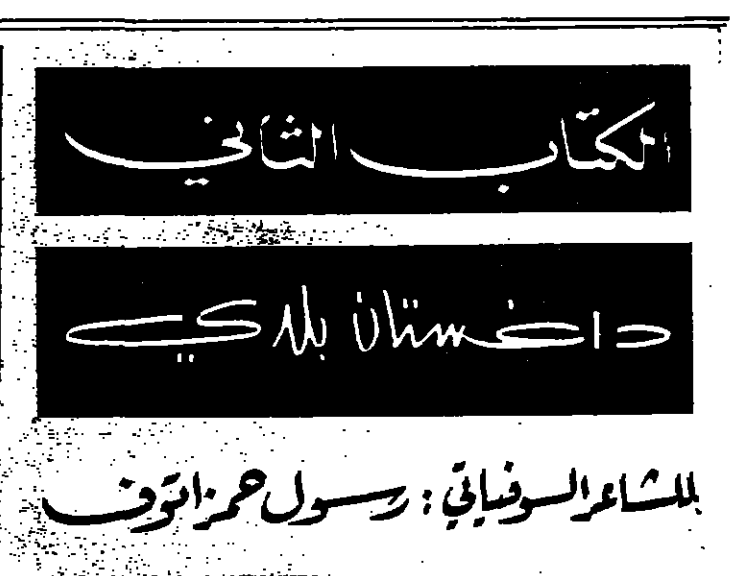 الكتاب الثاني
داغستان بلدي
للشاعر السوفياتي : رسول حمزاتوف